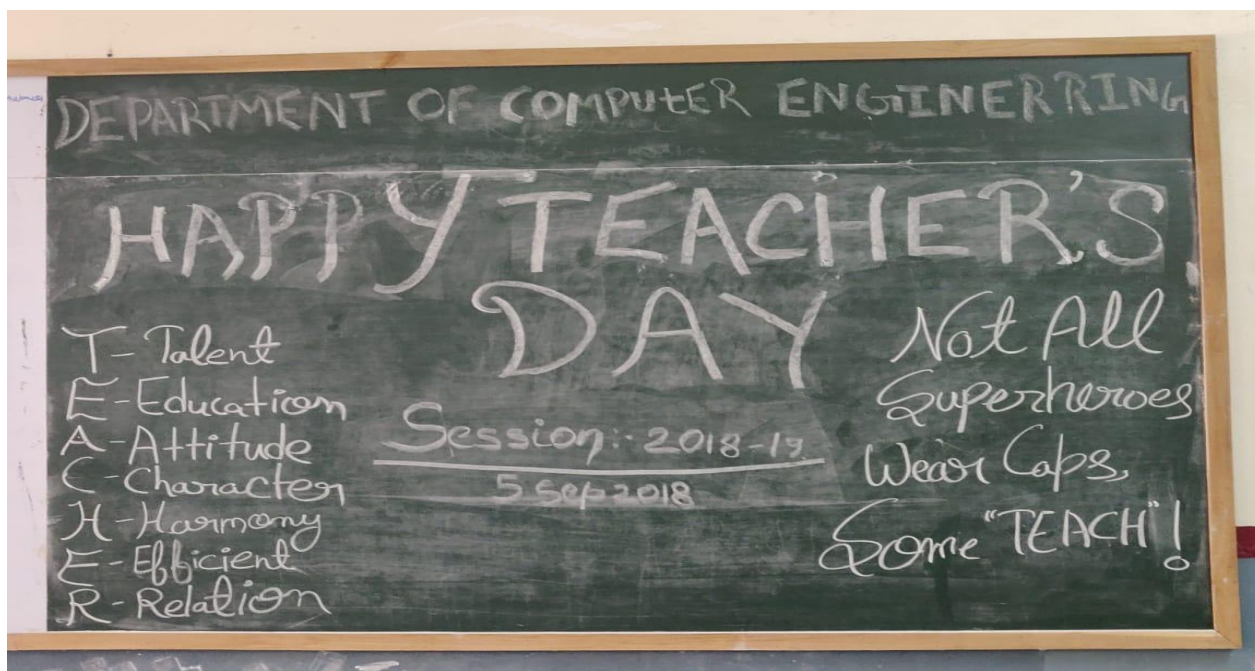 DEPARTMENT OF COMPUtER ENGINERRING
HAPPY TEACHER'S
DAY
T- Talent
E- Education
A- Attitude
C- Character
H- Harmony
E- Efficient
R- Relation
Session:- 2018-19
5 Sep 2018
Not All
Superheroes
Wear Caps,
Some "TEACH"!